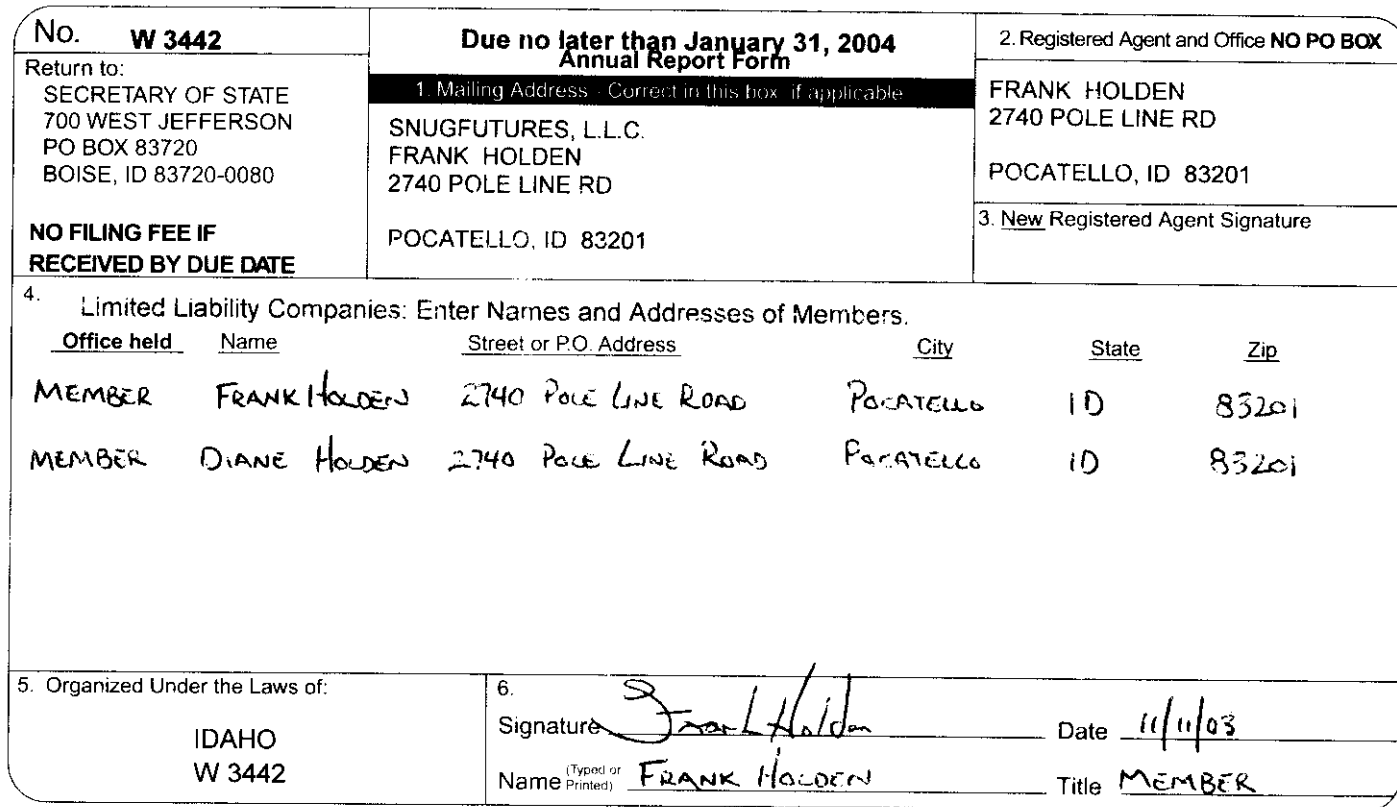 No. W 3442
Return to:
SECRETARY OF STATE
700 WEST JEFFERSON
PO BOX 83720
BOISE, ID 83720-0080
NO FILING FEE IF
RECEIVED BY DUE DATE
Due no later than January 31, 2004
Annual Report Form
1. Mailing Address - Correct in this box if applicable
SNUGFUTURES, L.L.C.
FRANK HOLDEN
2740 POLE LINE RD
POCATELLO, ID 83201
2. Registered Agent and Office NO PO BOX
FRANK HOLDEN
2740 POLE LINE RD
POCATELLO, ID 83201
3. New Registered Agent Signature
4. Limited Liability Companies: Enter Names and Addresses of Members.
Office held Name Street or P.O. Address City State Zip
MEMBER FRANK HOLDEN 2740 POLE LINE ROAD POCATELLO ID 83201
MEMBER DIANE HOLDEN 2740 POLE LINE ROAD POCATELLO ID 83201
5. Organized Under the Laws of:
IDAHO
W 3442
6.
Signature Frank Holden Date 11/11/03
Name (Typed or Printed) FRANK HOLDEN Title MEMBER